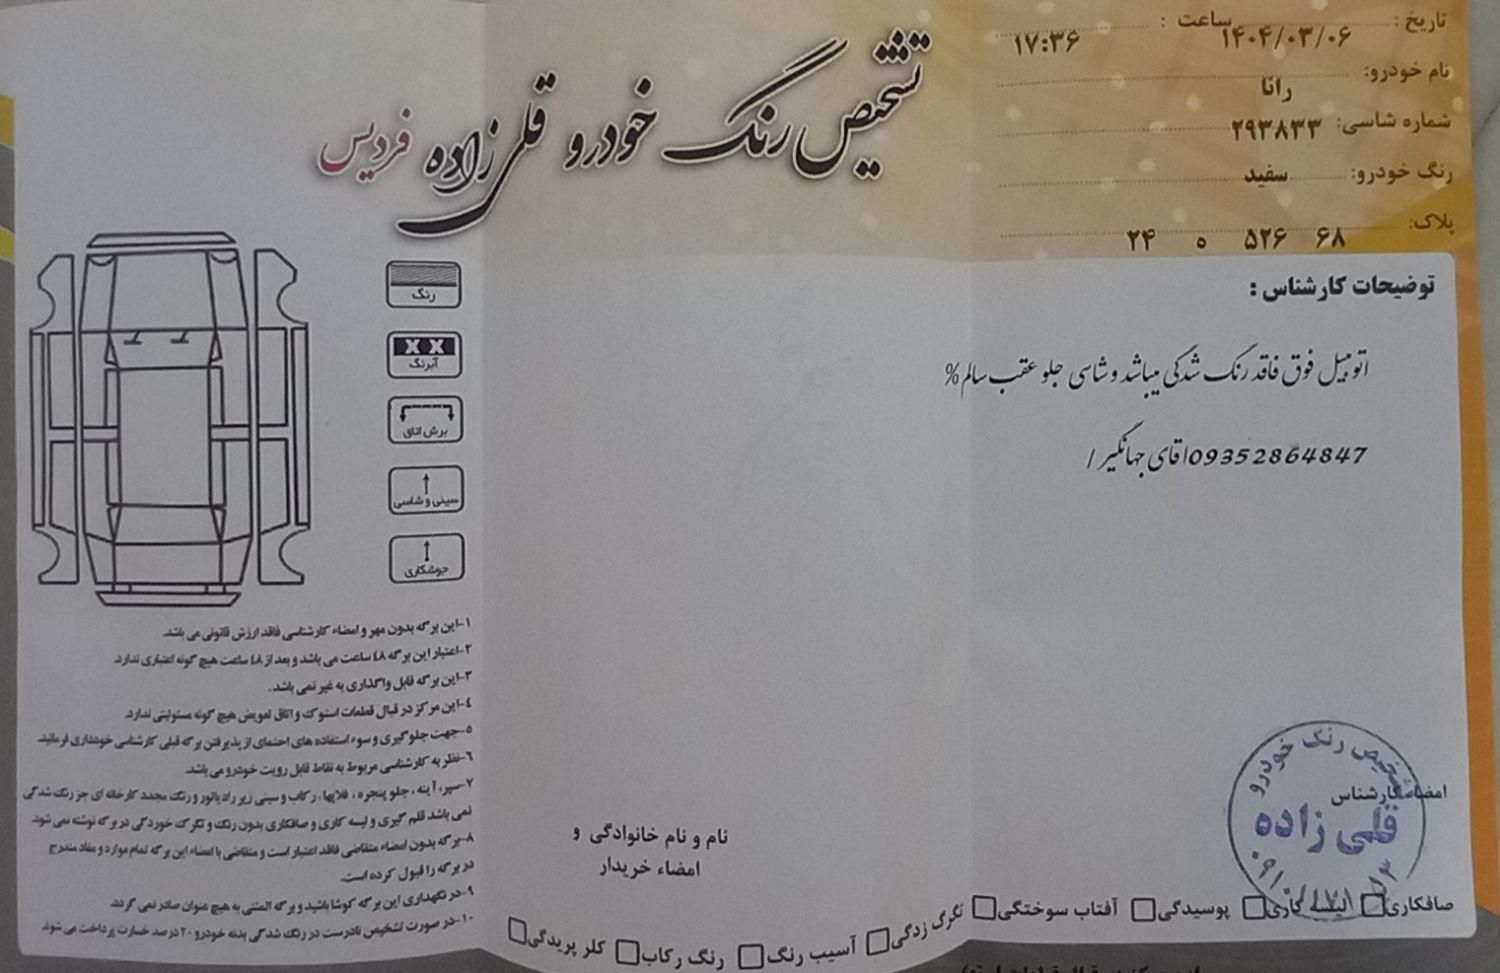 تشخیص رنگ خودرو قلی زاده فردیس
تاریخ : ۱۴۰۴/۰۳/۰۶ ساعت : ۱۷:۳۶
نام خودرو: رانا
شماره شاسی: ۲۹۳۸۳۳
رنگ خودرو: سفید
پلاک: ۶۸ ۵۲۶ ه ۲۴
توضیحات کارشناس :
اتومبیل فوق فاقد رنگ شدگی میباشد و شاسی جلو عقب سالم%
09352864847اقای جهانگیر/
رنگ
X X
آبرنگ
برش اتاق
سینی و شاسی
جوشکاری
۱-این برگه بدون مهر و امضاء کارشناسی فاقد ارزش قانونی می باشد.
۲-اعتبار این برگه ۴۸ ساعت می باشد و بعد از ۴۸ ساعت هیچ گونه اعتباری ندارد.
۳-این برگه قابل واگذاری به غیر نمی باشد.
۴-این مرکز در قبال قطعات استوک و اتاق تعویض هیچ گونه مسئولیتی ندارد.
۵-جهت جلوگیری و سوء استفاده های احتمای از پذیرفتن برگه قبلی کارشناسی خودداری فرمائید.
۶-نظر به کارشناسی مربوط به نقاط قابل رویت خودرو می باشد.
۷-سپر، آینه، جلو پنجره، قلابها، رکاب و سینی زیر رادیاتور و رنگ مجدد کارخانه ای جز رنگ شدگی
نمی باشد قلم گیری و لیسه کاری و صافکاری بدون رنگ و تگرک خوردگی در برگه نوشته نمی شود.
۸-برگه بدون امضاء متقاضی فاقد اعتبار است و متقاضی با امضاء این برگه تمام موارد و مفاد مندرج
در برگه را قبول کرده است.
۹-در نگهداری این برگه کوشا باشید و برگه المثنی به هیچ عنوان صادر نمی گردد.
۱۰-در صورت تشخیص نادرست در رنگ شدگی بدنه خودرو ۲۰ درصد خسارت پرداخت می شود.
نام و نام خانوادگی و
امضاء خریدار
امضاء کارشناس
تشخیص رنگ خودرو
قلی زاده
صافکاری لیسه کاری پوسیدگی آفتاب سوختگی تگرگ زدگی آسیب رنگ رنگ رکاب کلر پریدگی